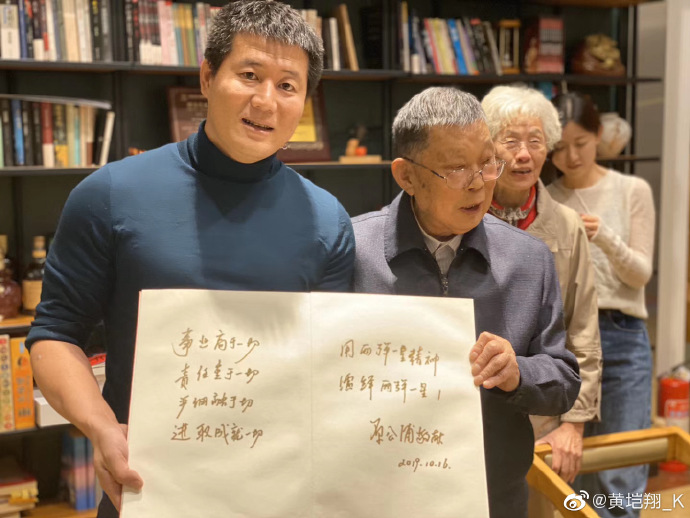 事业高于一切
责任重于一切
严细融于一切
进取成就一切
用两弹一星精神
演绎两弹一星!
原公浦敬献
2019.10.16.
@黄垲翔_K